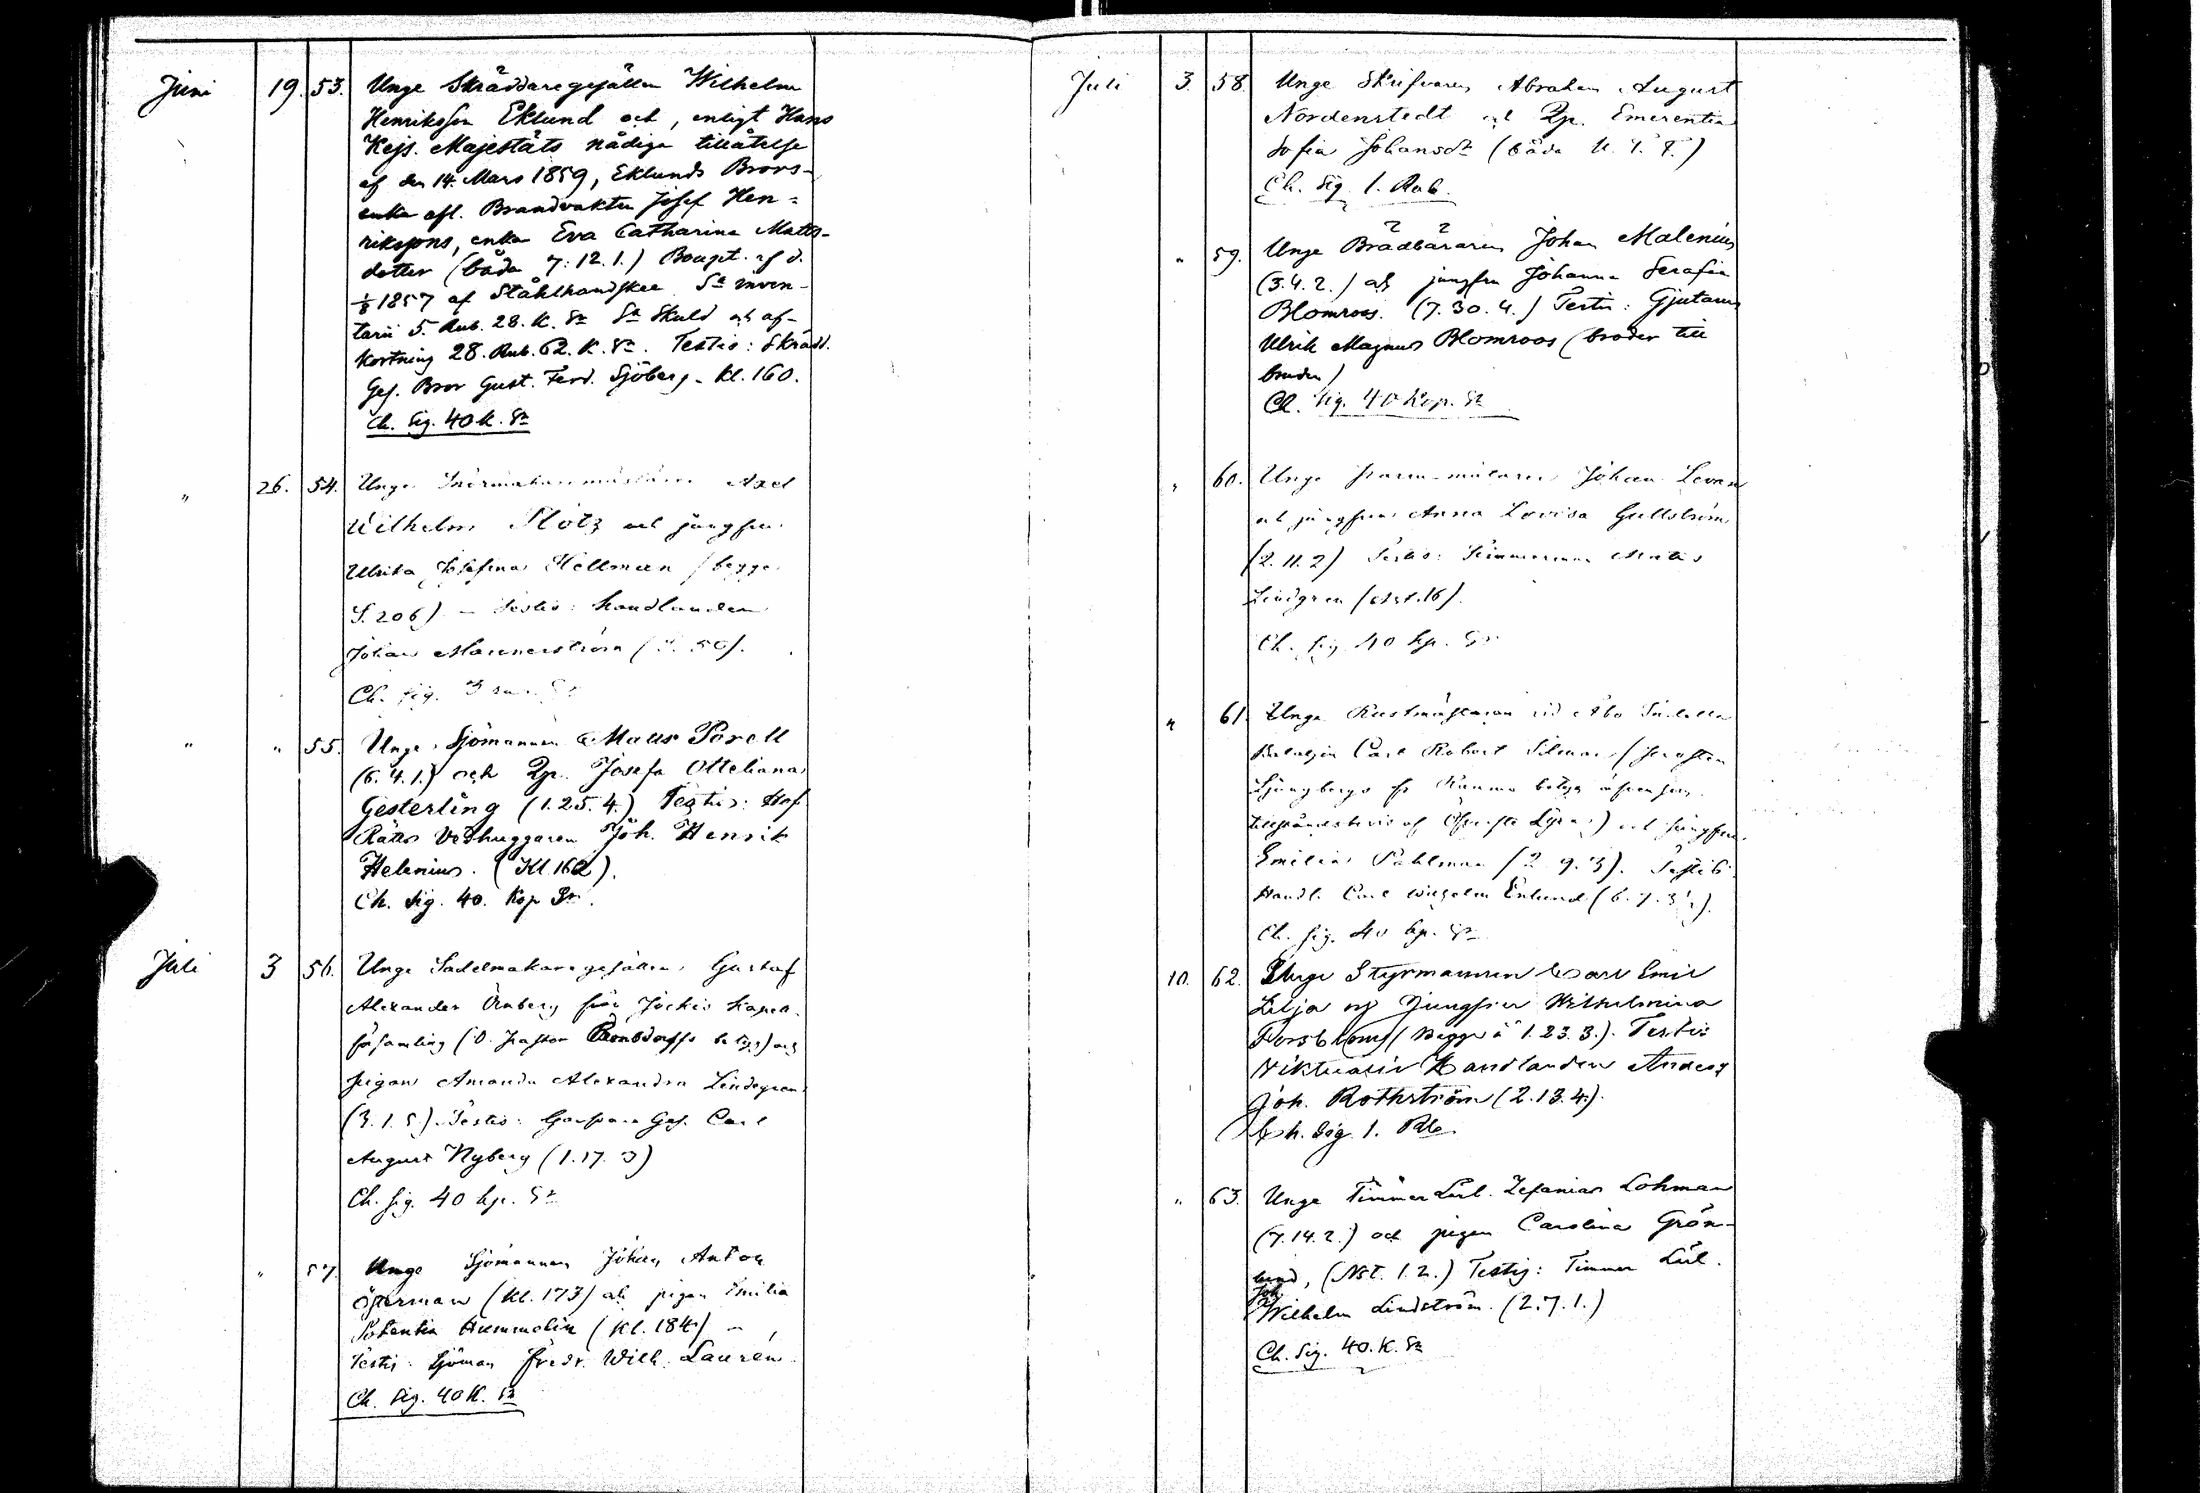 Juni 19. 53. Unge Skräddaregesällen Wilhelm
Henriksson Eklund och, enligt Hans
Kejs. Majestäts nådiga tillåtelse
af den 14. Mars 1859, Eklunds Brors-
enka afl. Brandvakten Josef Hen-
rikssons, enka Eva Catharina Matts-
dotter (båda 7. 12. 1.) Bouppt. af d.
1857 af Stålhandske Sr inven-
tarii 5. Rub. 28. K. Sr Skuld och af-
kortning 28. Rub. 62. K. Sr. Testis: Skrädd.
Ges. Bror Gust. Ferd. Sjöberg - Kl. 160.
Ch. Sig. 40 K. Sr
" 26. 54. Unge Axel
Wilhelm Plotz och jungfrun
Ulrika Josefina Hellman (begge
S. 206) - Testis: handlanden
Johan Mannerström
Ch. Sig. 3
" " 55. Unge Sjömannen Mats Parell
(6. 4. 1.) och Qp. Josefa Otteliana
Gesterling (1. 25. 4.) Testis: Hof
Rätts Vedhuggaren Joh. Henrik
Helenius. (Kl. 162).
Ch. Sig. 40. Kop Sr.
Juli 3 56. Unge Sadelmakaregesällen Gustaf
Alexander Örnberg från Jockis Kapell-
församling (V. Pastor betyg) och
pigan Amanda Alexandra Lindegren
(3. 1. 5) Testis: Garfvare Ges. Carl
August Nyberg (1. 17. 3)
Ch. Sig. 40 kp. Sr
" 57. Unge Sjömannen Johan Anton
Österman (Kl. 173) och pigan Emilia
Potentia Hummelin (Kl. 184) -
Testis: Sjöman Fredr. Wilh. Laurén
Ch. Sig. 40 K. Sr
Juli 3. 58. Unge Skrifvaren Abraham August
Nordenstedt och Qp. Emerentia
Sofia Johansdr (båda U. T. T.)
Ch. Sig. 1. Rub.
" 59. Unge Brädbäraren Johan Malenius
(3. 4. 2.) och jungfru Johanna Serafia
Blomroos. (7. 30. 4.) Testis: Gjutaren
Ulrik Magnus Blomroos (broder till
bruden)
Ch. Sig. 40 Kop. Sr
" 60. Unge Johan Levan
och jungfrun Anna Lovisa Gullström
(2. 11. 2) Testis: Timmerman Mats
Lindgren
Ch. Sig. 40 kp. Sr
" 61. Unge Rustmästaren vid Åbo
Bataljon Carl Robert
Ljungbergs
och jungfrun
Emilia Pahlman (2. 9. 3). Testis
Handl. Carl Wilhelm Enlund
Ch. Sig. 40 kp. Sr
10. 62. Unge Styrmannen Carl Emil
Lilja och Jungfru Wilhelmina
Forsblom (Begge i 1. 23. 3.). Testis
Viktualie Handlanden Anders
Joh. Rothström (2. 13. 4.).
Ch. Sig. 1. Rub
" 63. Unge Timmer Lärl. Zefanias Lohman
(7. 14. 2.) och pigan Carolina Grön-
lund, (Nst. 1. 2.) Testis: Timmer Lärl.
Joh. Wilhelm Lindström. (2. 7. 1.)
Ch. Sig. 40. K. Sr